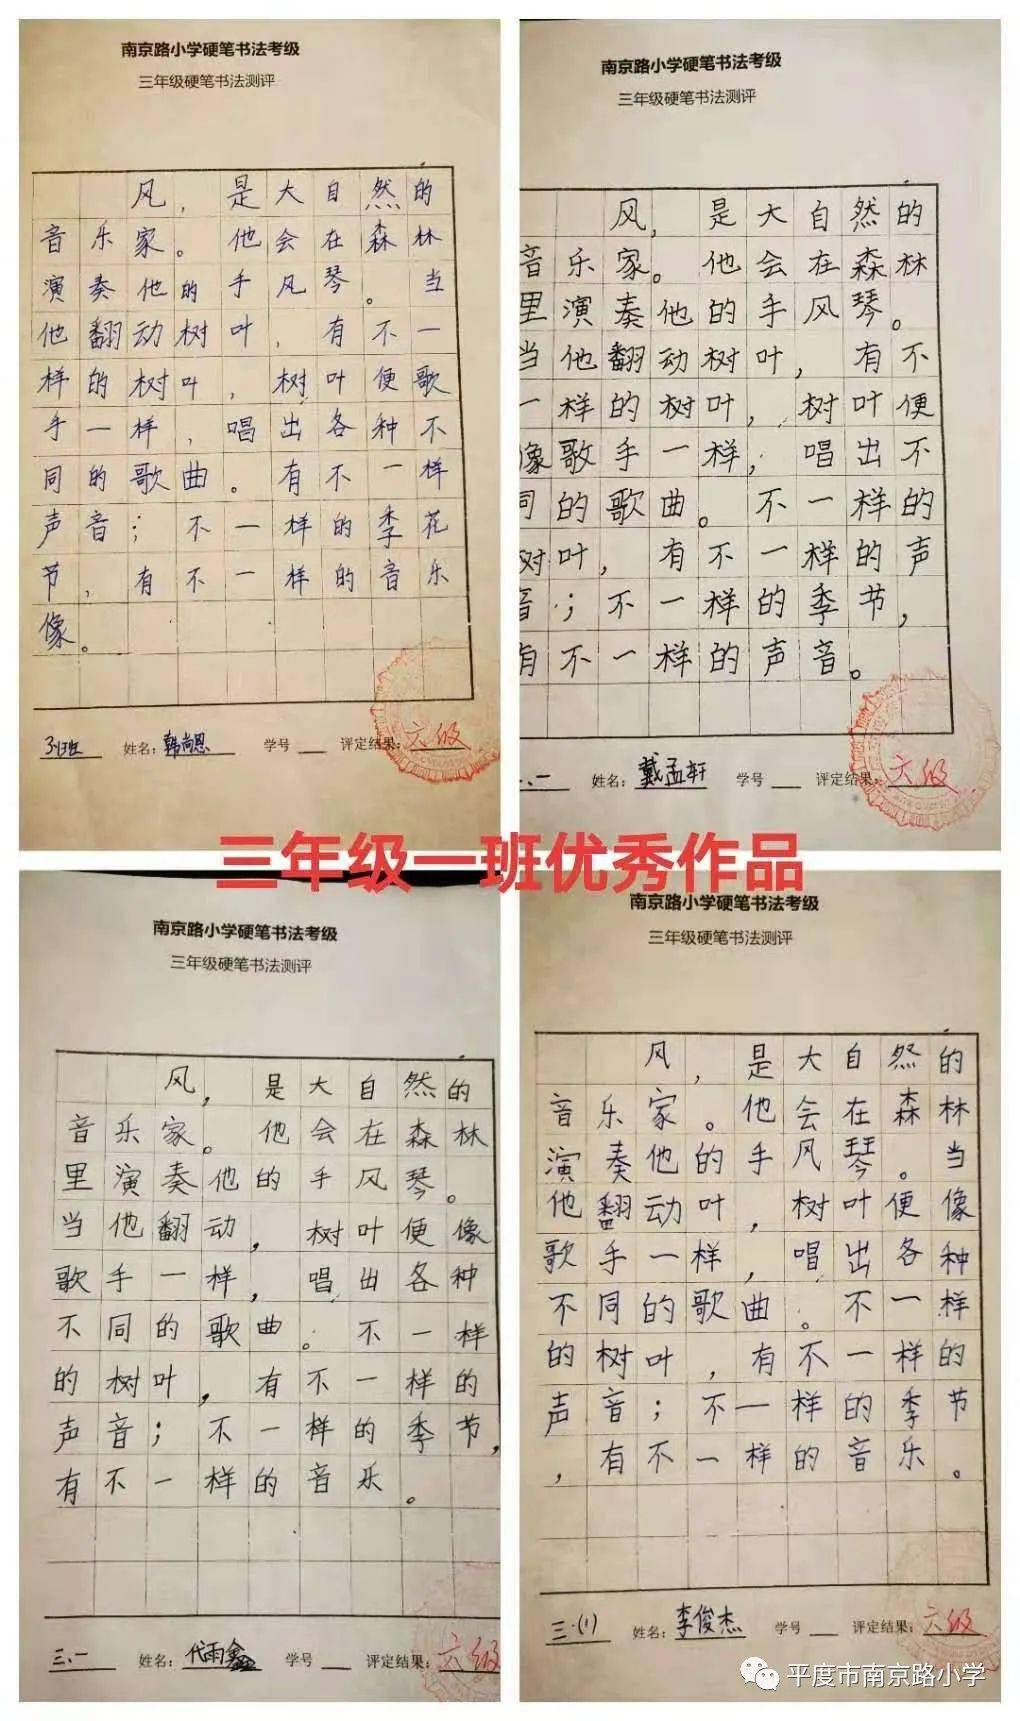 南京路小学硬笔书法考级
三年级硬笔书法测评
风，是大自然的
音乐家。他会在森林
演奏他的手风琴。当
他翻动树叶，有不一
样的树叶，树叶便歌
手一样，唱出各种不
同的歌曲。有不一样
声音；不一样的季花
节，有不一样的音乐
像。
姓名：韩尚恩 学号 评定结果：六级
南京路小学硬笔书法考级
三年级硬笔书法测评
风，是大自然的
音乐家。他会在森林
里演奏他的手风琴。
当他翻动树叶，有不
一样的树叶，树叶便
像歌手一样，唱出不
同的歌曲。不一样的
树叶，有不一样的声
音；不一样的季节，
有不一样的声音。
三、一 姓名：戴孟轩 学号 评定结果：六级
三年级一班优秀作品
南京路小学硬笔书法考级
三年级硬笔书法测评
风，是大自然的
音乐家。他会在森林
里演奏他的手风琴。
当他翻动，树叶便像
歌手一样，唱出各种
不同的歌曲。不一样
的树叶，有不一样的
声音；不一样的季节，
有不一样的音乐。
三、一 姓名：代雨鑫 学号 评定结果：六级
南京路小学硬笔书法考级
三年级硬笔书法测评
风，是大自然的
音乐家。他会在森林
演奏他的手风琴。当
他翻动叶，树叶便像
歌手一样，唱出各种
不同的歌曲。不一样
的树叶，有不一样的
声音；不一样的季节
，有不一样的音乐。
三.(1) 姓名：李俊杰 学号 评定结果：六级
平度市南京路小学